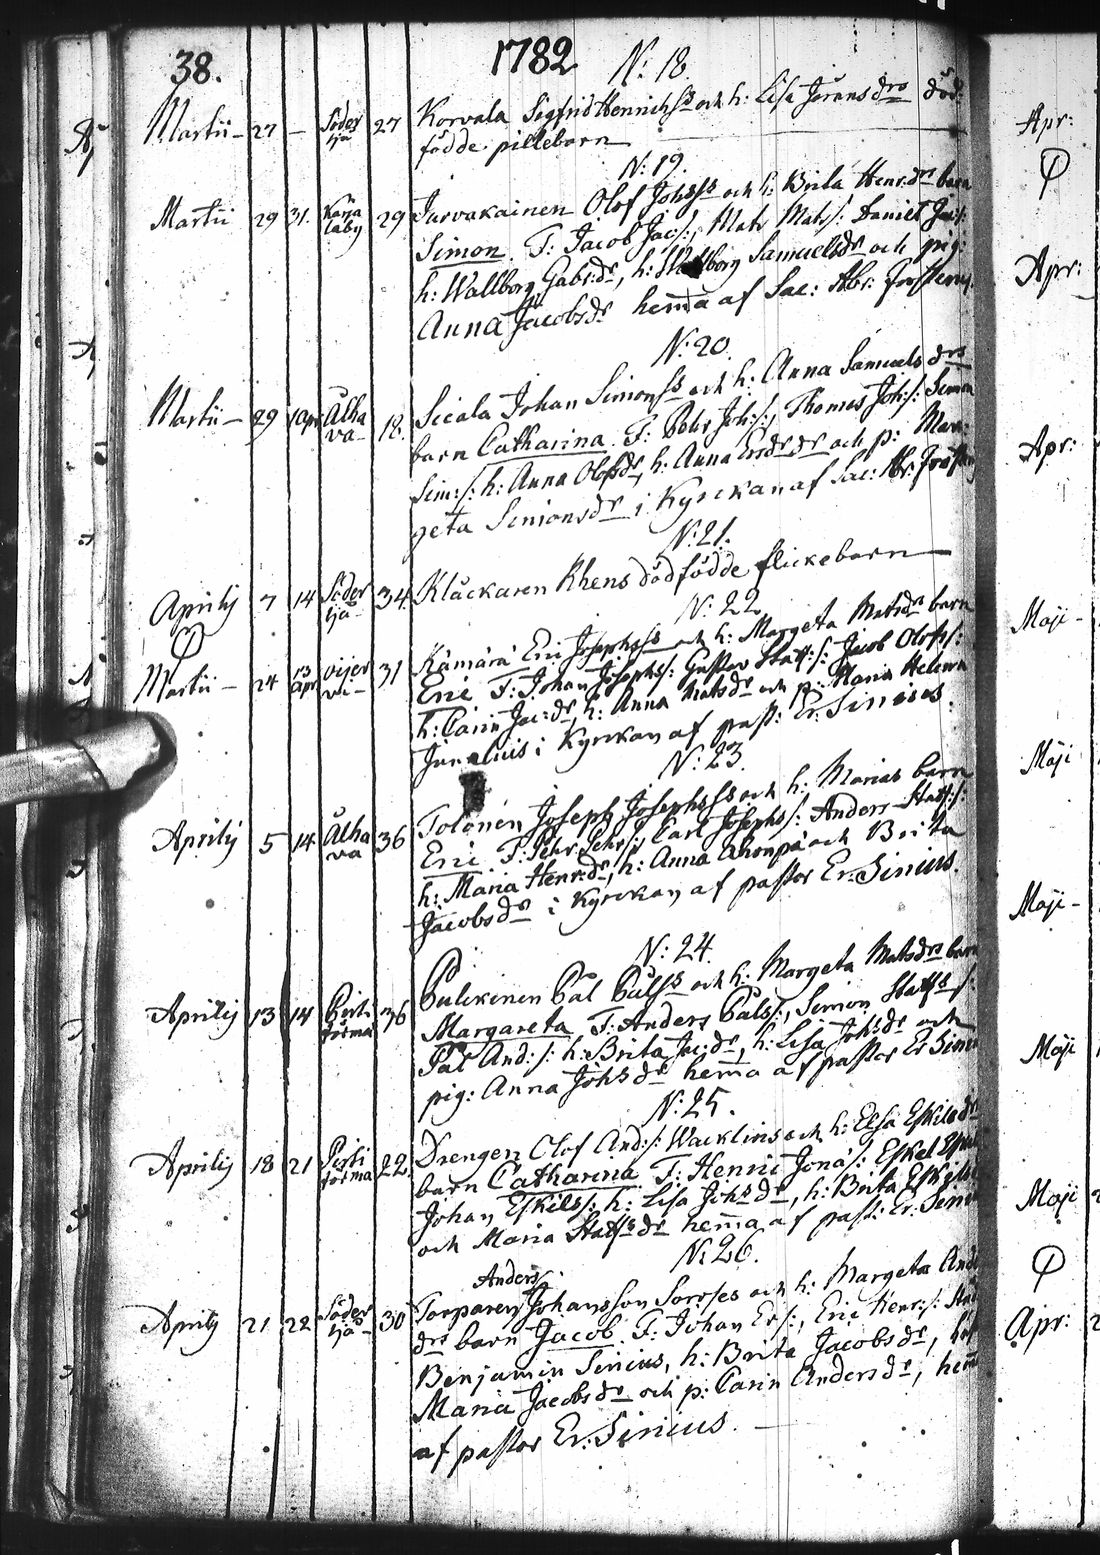 38. 1782
N: 18
Martii 27 — Söder tjä 27 Korvala Sigfrid Henrichss. och h: Lisa Jöransdrs död:
födde pillebarn
N: 19.
Martii 29 31. Karja laby 29 Jarvakainen Olof Johss:s och h: Brita Henr:drs barn
Simon. T: Jacob Jac:/:, Mats Mats/: Daniel Jac:/:
h: Wallborg Gabr:dr, h: Wallborg Samuelsdr och pig:
Anna Jacobsdr hema af Sac: Abr:
N: 20.
Martii 29 1 Apr Alha va 18. Johan Simonss:s och h: Anna Samuelsdrs
barn Catharina. T: Pehr Joh:/:, Thomas Joh:/: Simon
Sim:/: h: Anna Olofsdr, h: Anna Ersdr och p: Mar:
geta Simonsdr i Kyrckan af Sac: Abr:
N: 21.
Aprilij 7 14 Söder tjä 34 Klåckaren Rhens dödfödde flickebarn
N: 22
Martii 24 13 Apr 31 Kämärä Eric Josephss:s och h: Margeta Matsdrs barn
Eric T: Johan Josephs/: Gustav Staff:/: Jacob Olofs/:
h: Carin Jac:dr, h: Anna Matsdr och p: Maria Helena
i Kyrckan af past: Er: Sirnius.
N: 23.
Aprilij 5 14 Alha va 36 Tolonen Joseph Josephss:s och h: Marias barn
Eric T: Pehr Pehr:/: Carl Josephs/: Anders Staf:/:
h: Maria Henr:dr, h: Anna och Brita
Jacobsdr i Kyrckan af pastor Er: Sirnius.
N: 24.
Aprilij 13 14 Perti torma 36 Pulckinen Pål Pålss:s och h: Margeta Matsdrs barn
Margareta T: Anders Påls/:, Simon Staffs /:
Pål And:/: h: Brita Jac:dr, h: Lisa Johsdr och
pig: Anna Johsdr hema af pastor Er Sirnius
N: 25.
Aprilij 18 21 Perti torma 22. Drengen Olof And:/: Wacklins och h: Elsa Eskilsdrs
barn Catharina T: Henric Jona/: Eskel
Johan Eskils/: h: Lisa Johsdr, h: Brita Eskils
och Maria Staffsdr hema af past: Er: Sirnius
N: 26.
Anders
Aprilij 21 22 Söder tjä 30 Torparen Johansson Sorses och h: Margeta And
drs barn Jacob. T: Johan Er/:, Eric Henr:/:
Benjamin Sirnius, h: Brita Jacobsdr,
Maria Jacobsdr och p: Carin Andersdr, hem
af pastor Er: Sirnius.
Apr:
Apr:
Apr:
Maji
Maji
Maji
Maji
Maji
Apr: